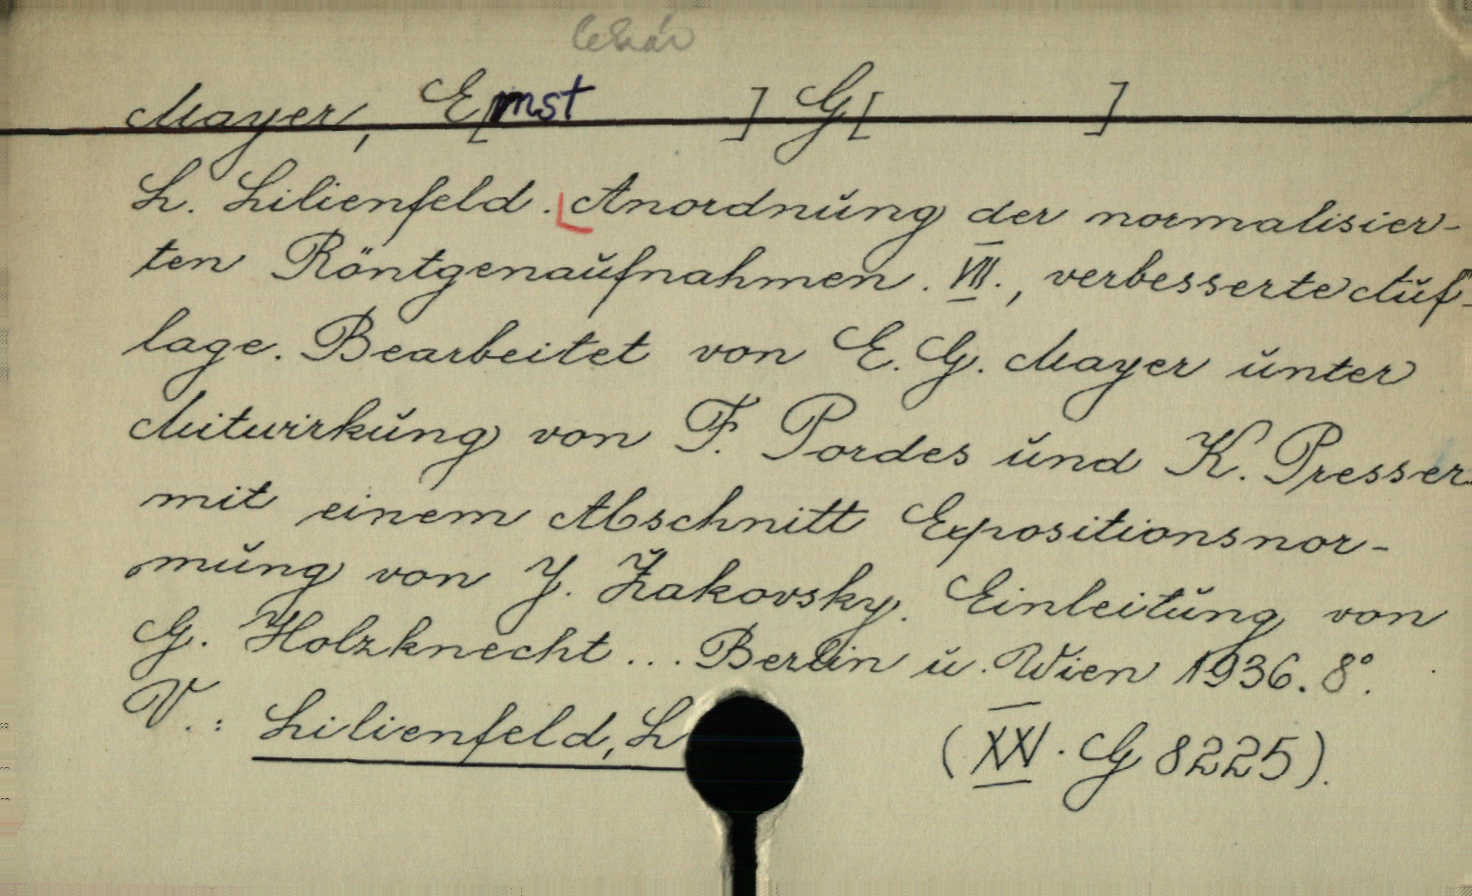 Mayer, E[rnst ] G[ ]
L. Lilienfeld. Anordnung der normalisier-
ten Röntgenaufnahmen. VIII., verbesserte Auf-
lage. Bearbeitet von E. G. Mayer unter
Mitwirkung von F. Pordes und K. Presser
mit einem Abschnitt Expositionsnor-
mung von J. Zakovsky. Einleitung von
G. Holzknecht... Berlin u. Wien 1936. 8°.
V.: Lilienfeld, L
(XV. G 8225).